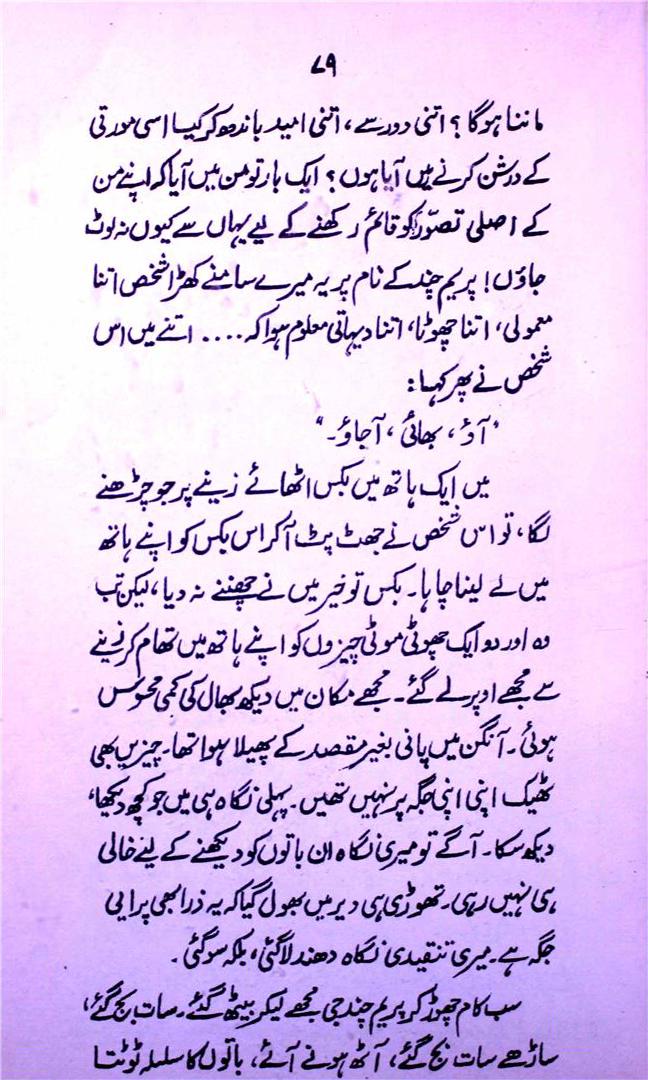 ۷۹
ماننا ہوگا؟ اتنی دور سے، اتنی امید باندھ کر کیا اسی مورتی
کے درشن کرنے میں آیا ہوں؟ ایک بار تو من میں آیا کہ اپنے من
کے اصلی تصوّر کو قائم رکھنے کے لیے یہاں سے کیوں نہ لوٹ
جاؤں! پریم چند کے نام پر یہ میرے سامنے کھڑا شخص اتنا
معمولی، اتنا چھوٹا، اتنا دیہاتی معلوم ہوا کہ .... اتنے میں اس
شخص نے پھر کہا:
"آؤ، بھائی، آجاؤ۔"
میں ایک ہاتھ میں بکس اٹھائے زینے پر جو چڑھنے
لگا، تو اس شخص نے جھٹ پٹ آکر اس بکس کو اپنے ہاتھ
میں لے لینا چاہا۔ بکس تو خیر میں نے چھننے نہ دیا، لیکن تب
وہ اور دو ایک چھوٹی موٹی چیزوں کو اپنے ہاتھ میں تھام کر زینے
سے مجھے اوپر لے گئے۔ مجھے مکان میں دیکھ بھال کی کمی محسوس
ہوئی۔ آنگن میں پانی بغیر مقصد کے پھیلا ہوا تھا۔ چیزیں بھی
ٹھیک اپنی اپنی جگہ پر نہیں تھیں۔ پہلی نگاہ ہی میں جو کچھ دیکھا،
دیکھ سکا۔ آگے تو میری نگاہ ان باتوں کو دیکھنے کے لیے خالی
ہی نہیں رہی۔ تھوڑی ہی دیر میں بھول گیا کہ یہ ذرا بھی پرایی
جگہ ہے۔ میری تنقیدی نگاہ دھندلا گئی، بلکہ سو گئی۔
سب کام چھوڑ کر پریم چند جی مجھے لیکر بیٹھ گئے۔ سات بج گئے،
ساڑھے سات بج گئے، آٹھ ہونے آئے، باتوں کا سلسلہ ٹوٹتا